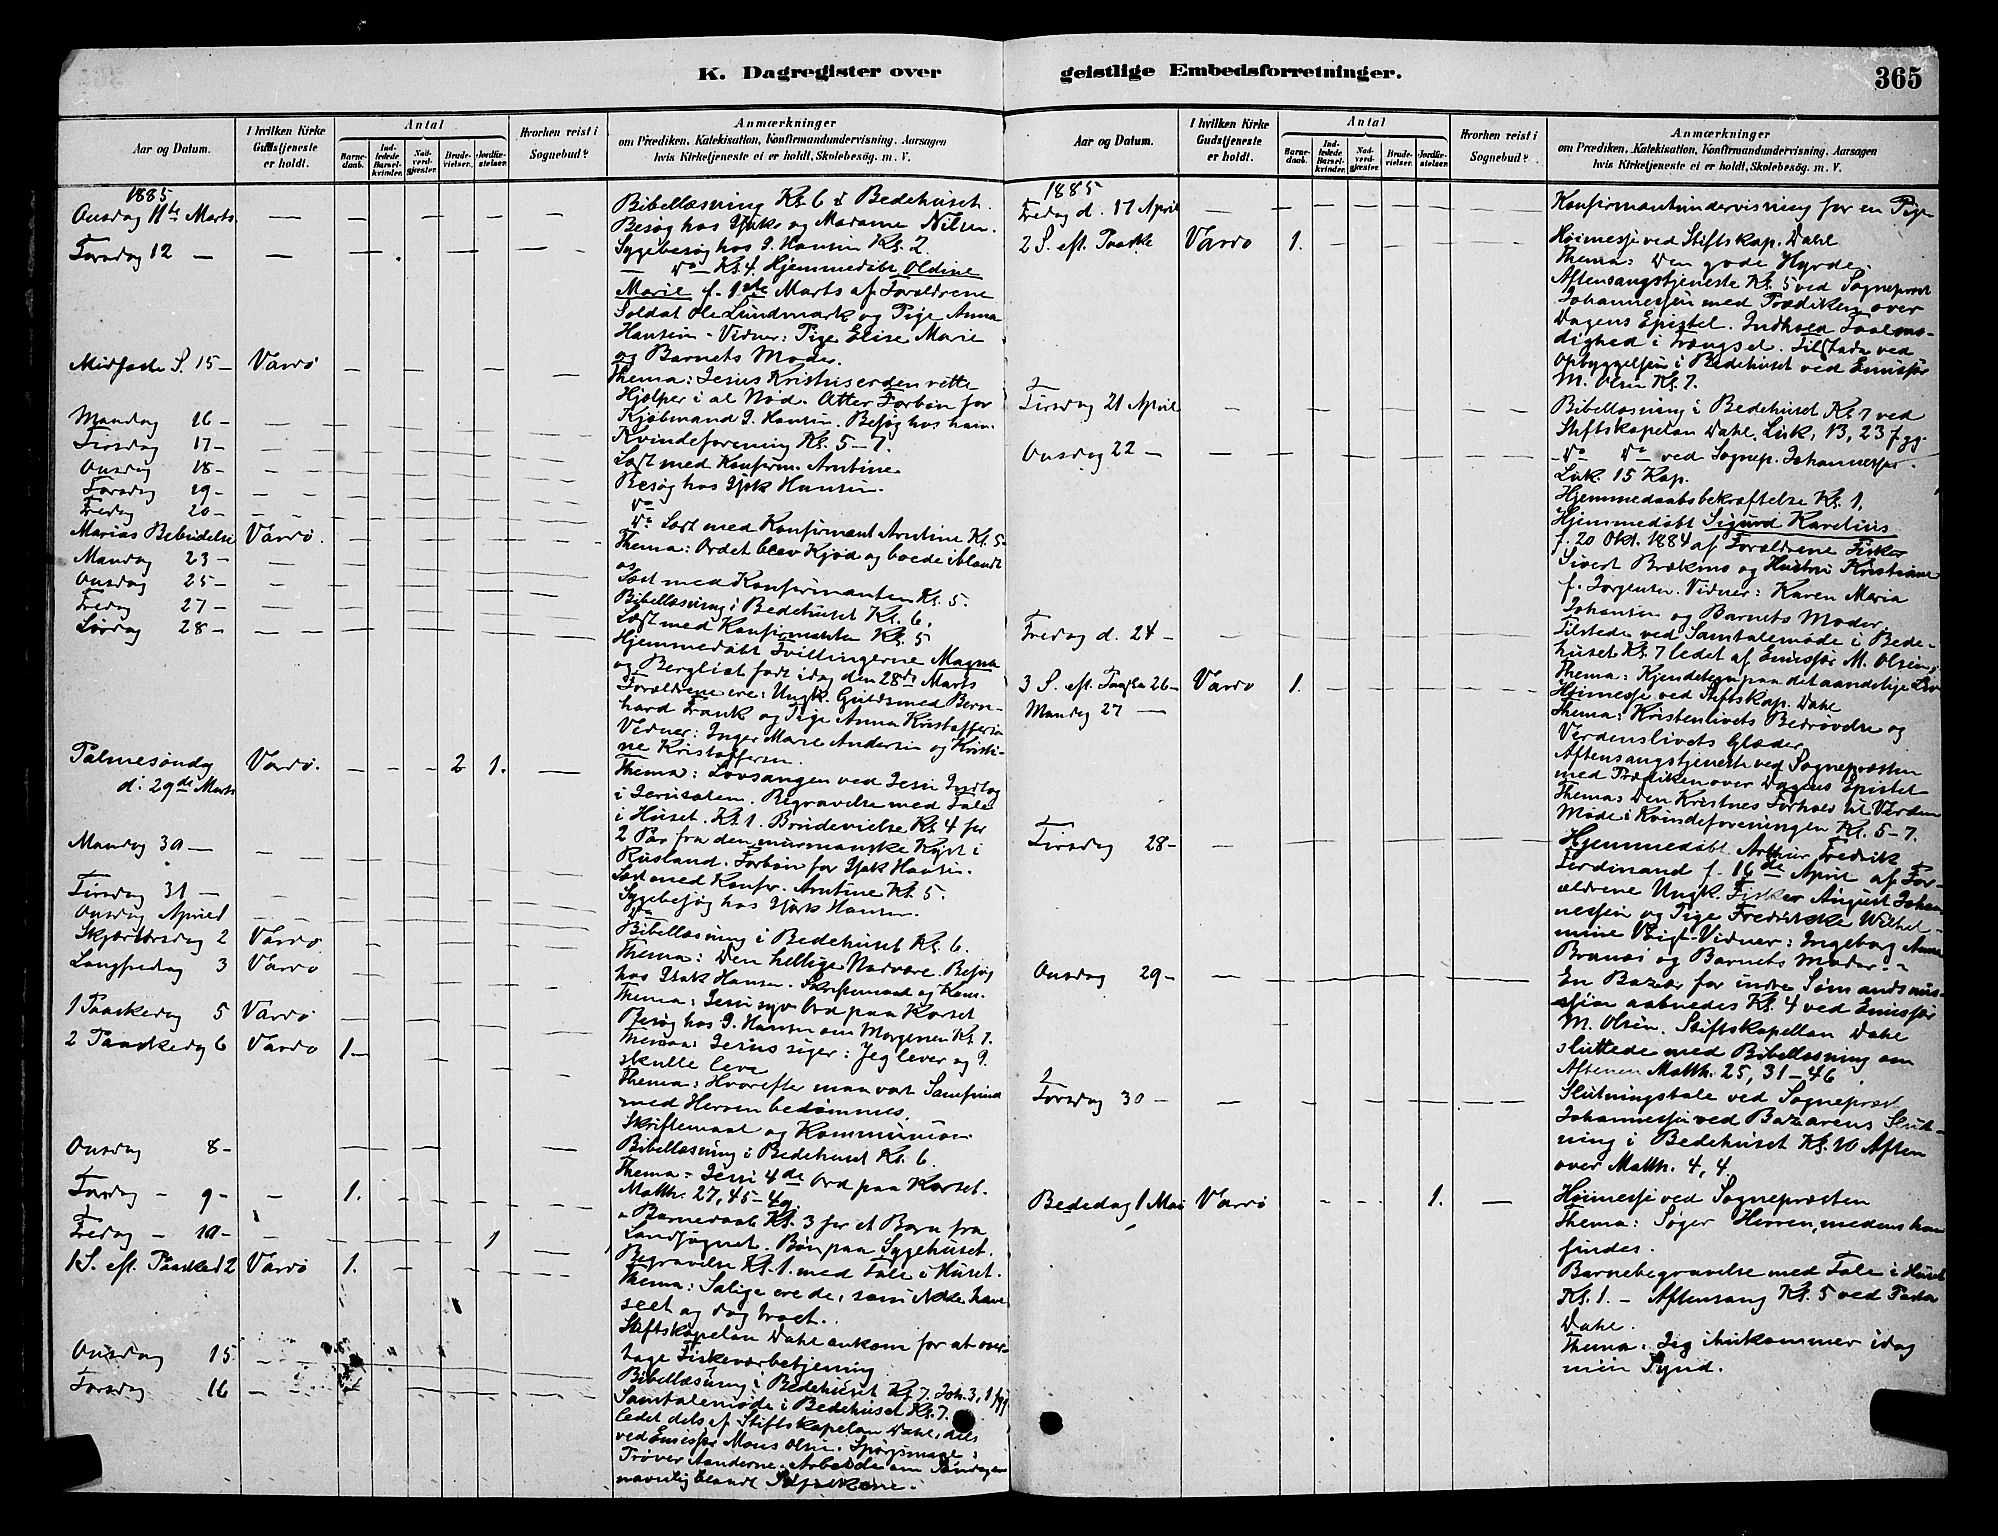 K. Dagregister over
geistlige Embedsforretninger.
365
Aar og Datum.
I hvilken Kirke Gudstjeneste er holdt.
Antal
Barnedaab.
Indledede Barselkvinder.
Nadverdgjæster.
Brudevielser.
Jordfæstelser.
Hvorhen reist i Sognebud?
Anmærkninger
om Prædiken, Katekisation, Konfirmandundervisning, Aarsagen
hvis Kirketjeneste ei er holdt, Skolebesøg. m. V.
1885
Onsdag 11te Marts
Bibellæsning Kl. 6 i Bedehuset.
Besøg hos Madame Nilsen.
Torsdag 12 —
Sygebesøg hos I. Hansen Kl. 2.
— Do Kl. 4. Hjemmedøbt Oldine
Marie f. 1ste Marts af Forældrene
Soldat Ole Lundmark og Pige Anna
Hansen - Vidner: Pige Elise Marie
og Barnets Moder.
Midfaste S. 15 — Vardø
Thema: Jesus Kristus er den rette
Hjælper i al Nød. Atter Forbøn for
Kjøbmand I. Hansen. Besøg hos ham.
Mandag 16 —
Kvindeforening Kl. 5 – 7.
Tirsdag 17 —
Læst med Konfirm. Arntine.
Onsdag 18 —
Besøg hos Hansen.
Torsdag 19 —
Do
Fredag 20 —
Do Læst med Konfirmant Arntine Kl. 5.
Marias Bebudelse Vardø.
Thema: Ordet blev Kjød og boede iblandt
os
Mandag 23 —
Læst med Konfirmanten Kl. 5.
Onsdag 25 —
Bibellæsning i Bedehuset Kl. 6.
Fredag 27 —
Læst med Konfirmanten Kl. 5
Lørdag 28 —
Hjemmedøbt Tvillingerne Magna
og Bergliot født idag den 28de Marts
Forældrene ere: Ungk. Guldsmed Bern-
hard Frank og Pige Anna Kristoffersen
Vidner: Inger Marie Andersen og Kristi-
ne Kristoffersen.
Palmesøndag Vardø. 2 1.
d. 29de Marts
Thema: Lovsangen ved Jesu Indtog
i Jerusalem. Begravelse med Tale
i Huset. Kl. 1. Brudevielse Kl. 4 for
2 Par fra den murmanske Kyst i
Rusland. Forbøn for Hansen.
Mandag 30 —
Læst med Konfr. Arntine Kl. 5.
Tirsdag 31 —
Sygebesøg hos Hansen.
Onsdag April 1
Do
Bibellæsning i Bedehuset Kl. 6.
Skjærtorsdag 2 Vardø
Thema: Den hellige Nadvere. Besøg
hos Hansen. Skriftemaal og Kom.
Langfredag 3 Vardø
Thema: Jesu syv Ord paa Korset
Besøg hos I. Hansen om Morgenen Kl. 7.
1 Paaskedag 5 Vardø
Thema: Jesus siger: Jeg lever og I
skulle leve
2 Paaskedag 6 Vardø 1
Thema: Hvorefter maa vort Samfund
med Herren bedømmes.
Skriftemaal og Kommunion.
Onsdag 8 —
Bibellæsning i Bedehuset Kl. 6.
Thema = Jesu 4de Ord paa Korset.
Matth. 27, 45–49
Torsdag — 9 — 1.
Barnedaab Kl. 3 for et Barn fra
Landsognet. Bøn paa Sygehuset.
Fredag — 10 — 1
Begravelse Kl. 1. med Tale i Huset.
1 S. eft. Paaske 12 Vardø 1.
Thema: Salige ere de, som ikke have
seet og dog troet.
Stiftskapelan Dahl ankom for at over-
tage Fiskeværbetjening
Onsdag 15
Bibellæsning i Bedehuset Kl. 7. Joh. 3, 1 fgg
Torsdag 16
Samtalemøde i Bedehuset Kl. 7.
Ledet dels af Stiftskapelan Dahl, dels
ved Emissær Mons Olsen. Spørgsmaal:
Prøver Aanderne. Arbeide om Søndagen
navnlig blandt
Aar og Datum.
I hvilken Kirke Gudstjeneste er holdt.
Antal
Barnedaab.
Indledede Barselkvinder.
Nadverdgjæster.
Brudevielser.
Jordfæstelser.
Hvorhen reist i Sognebud?
Anmærkninger
om Prædiken, Katekisation, Konfirmandundervisning, Aarsagen
hvis Kirketjeneste ei er holdt, Skolebesøg. m. V.
1885
Fredag d. 17 April
Konfirmantundervisning for en Pige
2 S. eft. Paaske Vardø 1.
Høimesse ved Stiftskap. Dahl
Thema: Den gode Hyrde.
Aftensangstjeneste Kl. 5 ved Sognepræst
Johannessen med Prædiken over
Dagens Epistel. Indhold Taalmo-
dighed i Trængsel. Tilstede ved
Opbyggelsen i Bedehuset ved Emissær
M. Olsen Kl. 7.
Tirsdag 21 April
Bibellæsning i Bedehuset Kl. 7 ved
Stiftskapelan Dahl. Luk. 13, 23 fgg.
Onsdag 22 —
Do Do ved Sognep. Johannessen.
Luk. 15 Kap.
Hjemmedaabsbekræftelse Kl. 1,
Hjemmedøbt Sigurd Karelius
f. 20 Okt. 1884 af Forældrene Fisker
Sivert Brækmo og Hustru Kristiane
f. Jørgensen. Vidner: Karen Maria
Johansen og Barnets Moder.
Fredag d. 24 —
Tilstede ved Samtalemøde i Bede-
huset Kl. 7 ledet af Emissær M. Olsen
Thema: Kjendetegn paa det aandelige Liv
3 S. eft. Paaske 26 — Vardø 1.
Høimesse ved Stiftskap. Dahl
Thema: Kristenlivets Bedrøvelse og
Verdenslivets Glæder
Aftensangstjeneste ved Sognepræsten
med Prædiken over Dagens Epistel
Thema: Den Kristnes Forhold til Verden
Mandag 27 —
Møde i Kvindeforeningen Kl. 5–7.
Tirsdag 28 —
Hjemmedøbt Arthur Fredrik
Ferdinand f. 16de April af For-
ældrene Ungk. Fisker August Johan-
nessen og Pige Fredrikke Wilhel-
mine Voigt. Vidner: Ingeborg Anna
og Barnets Moder. —
Onsdag 29 —
En Bazar for indre Sømandsmis-
sion aabnedes Kl. 4 ved Emissær
M. Olsen. Stiftskapellan Dahl
sluttede med Bibellæsning om
Aftenen Matth. 25, 31–46
Torsdag 30 —
Slutningstale ved Sognepræst
Johannessen ved Bazarens Slut-
ning i Bedehuset Kl. 10 Aften
over Matth. 4, 4
Bededag 1 Mai Vardø 1.
Høimesse ved Sognepræsten
Thema: Søger Herren, medens han
findes.
Barnebegravelse med Tale i Huset
Kl. 1. — Aftensang Kl. 5 ved Pastor
Dahl.
Thema: Jeg ihukommer idag
min Synd.